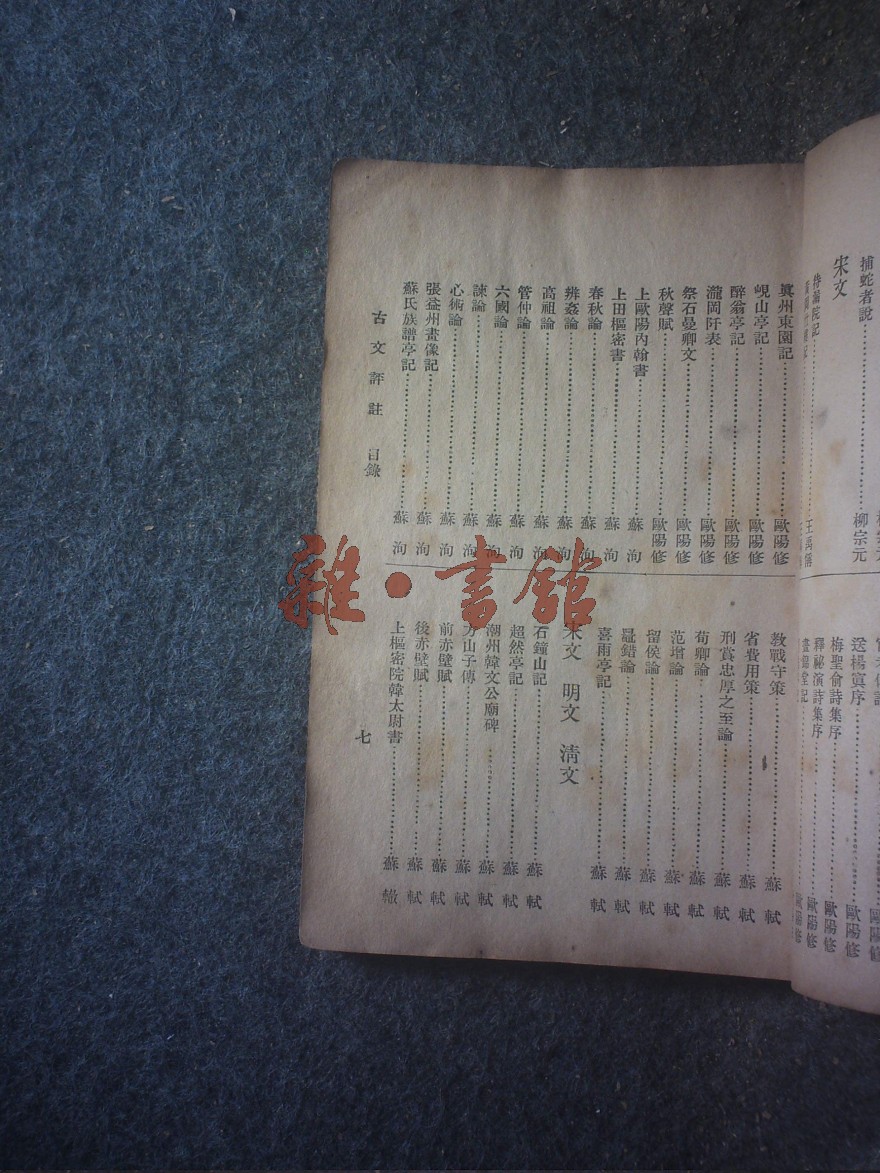 捕蛇者說……柳宗元
宋文
待漏院記……王禹偁
送楊寘序……歐陽修
梅聖俞詩集序……歐陽修
釋祕演詩集序……歐陽修
晝錦堂記……歐陽修
眞州東園記……歐陽修
峴山亭記……歐陽修
醉翁亭記……歐陽修
瀧岡阡表……歐陽修
祭石曼卿文……歐陽修
秋聲賦……歐陽修
上歐陽內翰書……蘇洵
上田樞密書……蘇洵
春秋論……蘇洵
辨姦論……蘇洵
高祖論……蘇洵
管仲論……蘇洵
六國論……蘇洵
諫論……蘇洵
心術論……蘇洵
張益州畫像記……蘇洵
蘇氏族譜亭記……蘇洵
敎戰守策……蘇軾
省費用策……蘇軾
刑賞忠厚之至論……蘇軾
荀卿論……蘇軾
范增論……蘇軾
留侯論……蘇軾
鼂錯論……蘇軾
喜雨亭記……蘇軾
宋文 明文 淸文
石鐘山記……蘇軾
超然亭記……蘇軾
潮州韓文公廟碑……蘇軾
方山子傳……蘇軾
前赤壁賦……蘇軾
後赤壁賦……蘇軾
上樞密院韓太尉書……蘇轍
古文評註 目錄
七
雜·書館